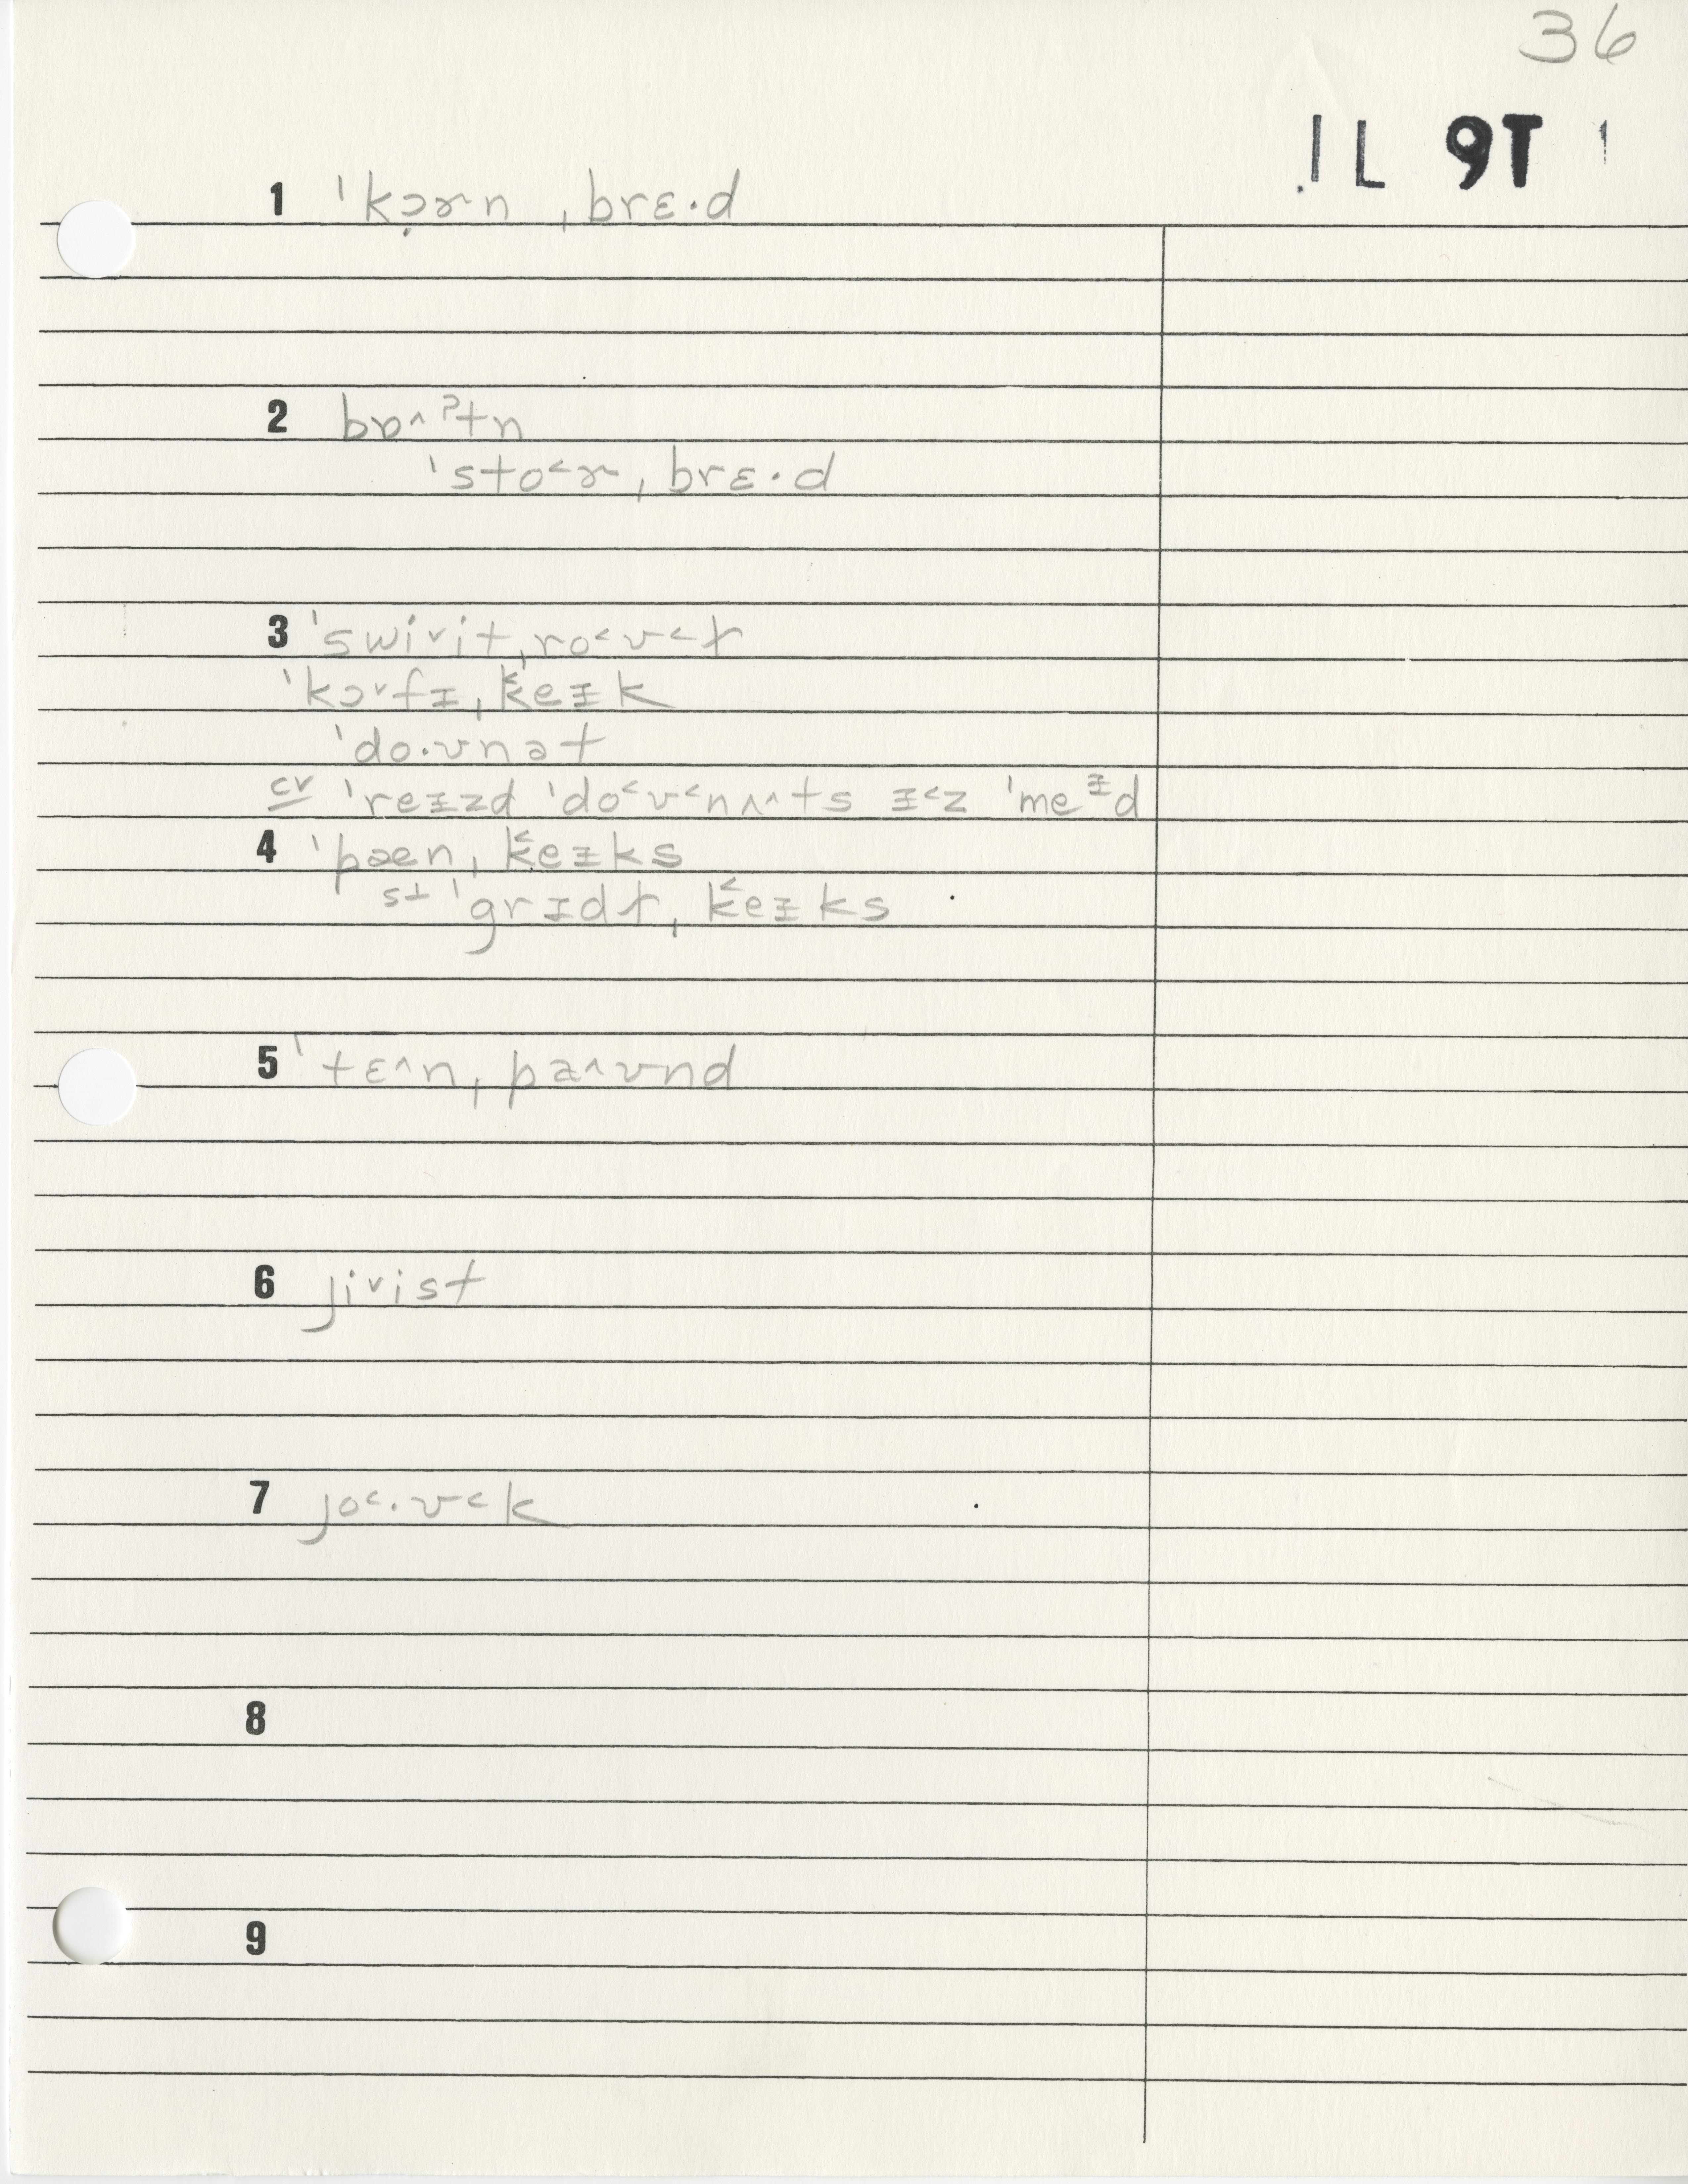 36
IL 9T 1
1 ˈkɔ̣ɚn ˌbrɛ·d
2 bɒ˄ˀtn
ˈsto˂ɚ ˌbrɛ·d
3 ˈswi˅it ˌro˂ʊ˂ɫ
ˈkɔ˅fᵻ ˌk̬̆eᵻk
ˈdo·ʊnət
cv ˈreᵻzd ˈdo˂ʊ˂nʌ˄ts ᵻ˂z ˈmeᵻd
4 ˈpæn ˌk˂eᵻks
st ˈgrᵻdɫ ˌk˂eᵻks
5 ˈtɛ˄n ˌpa˄ʊnd
6 ji˅ist
7 jo˂·ʊ˂k
8
9